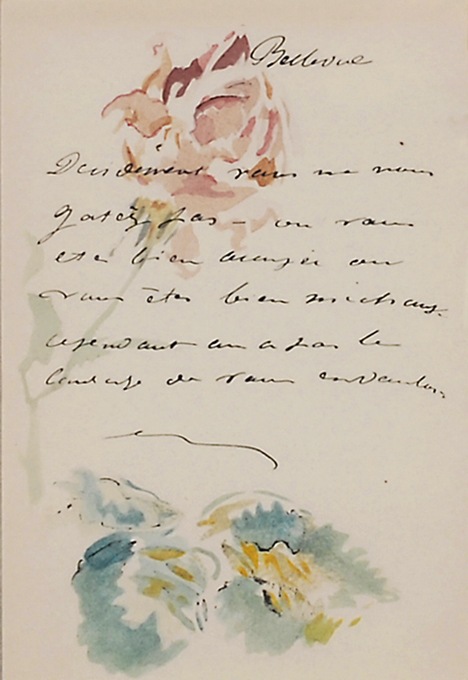 Bellevue
Décidément vous ne nous
gatez pas – ou vous
etes bien occupée ou
vous êtes bien méchante.
cependant on a pas le
courage de vous en vouloir